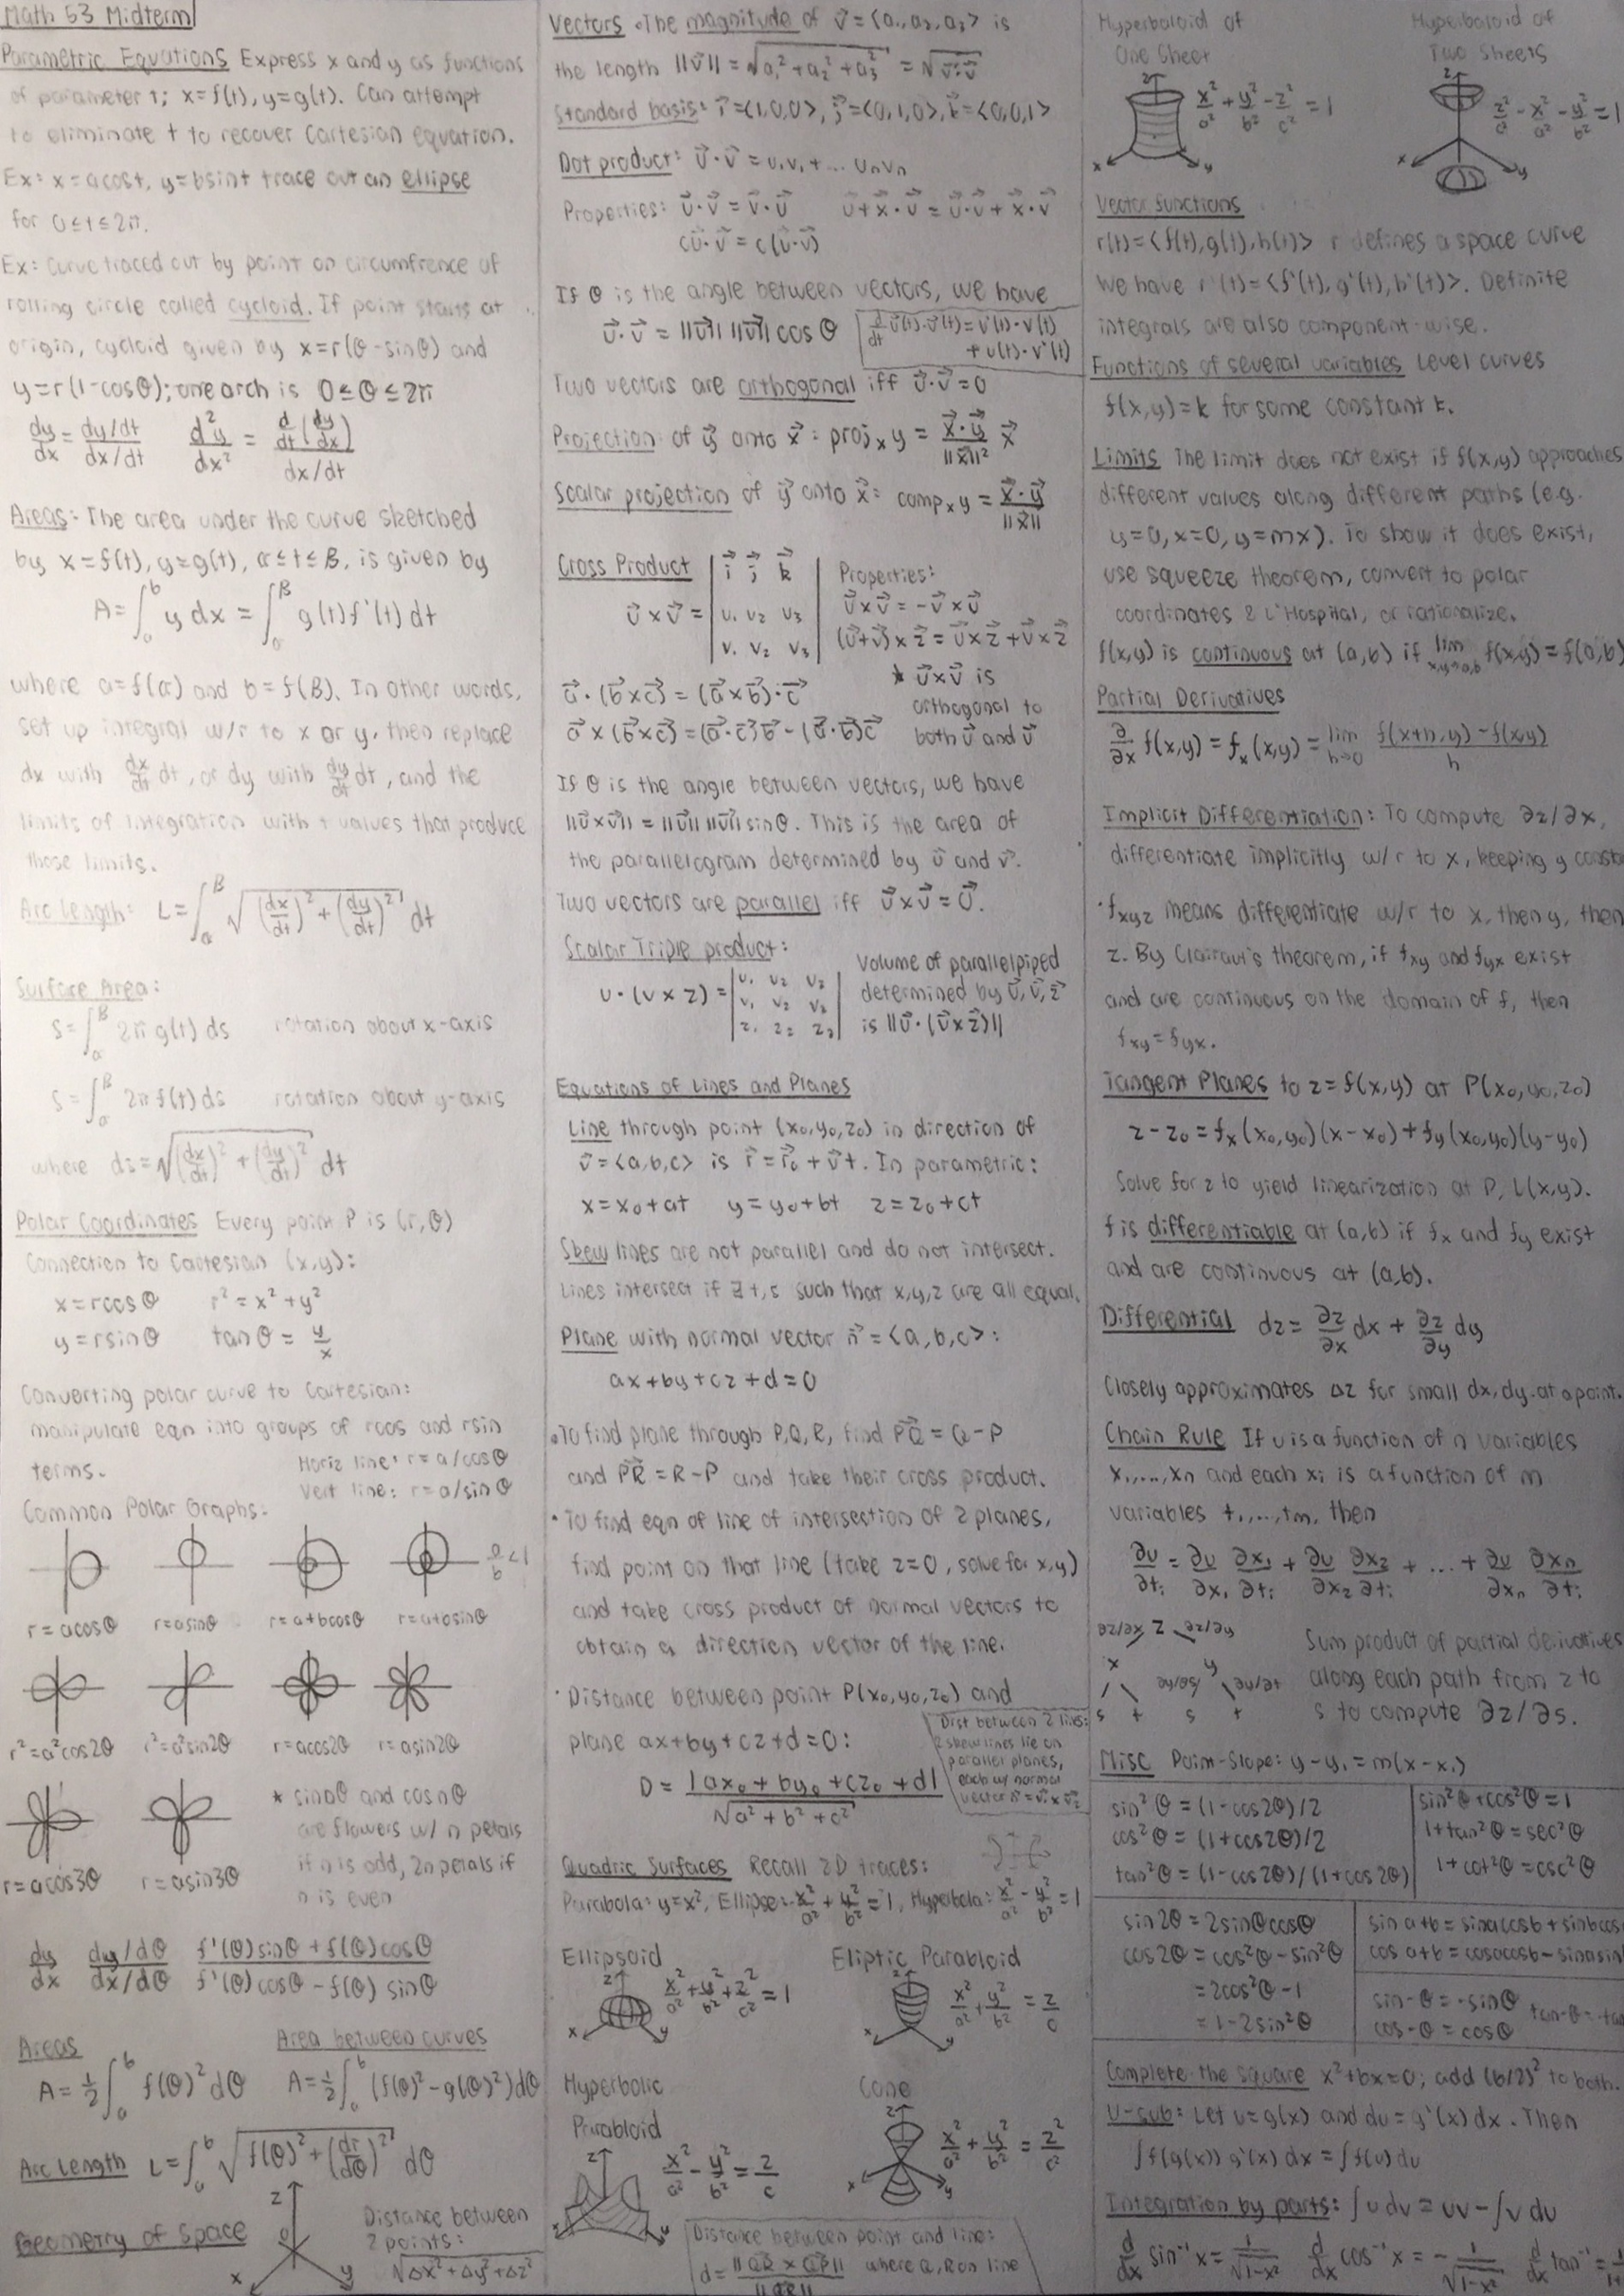 Math 53 Midterm
Parametric Equations Express x and y as functions
of parameter t; x=f(t), y=g(t). Can attempt
to eliminate t to recover Cartesian equation.
Ex: x=acost, y=bsint trace out an ellipse
for 0≤t≤2π.
Ex: Curve traced out by point on circumfrence of
rolling circle called cycloid. If point starts at
origin, cycloid given by x=r(θ-sinθ) and
y=r(1-cosθ); one arch is 0≤θ≤2π
dy/dx = (dy/dt)/(dx/dt) d²y/dx² = (d/dt(dy/dx))/(dx/dt)
Areas: The area under the curve sketched
by x=f(t), y=g(t), α≤t≤β, is given by
A=∫_a^b y dx = ∫_α^β g(t)f'(t)dt
where a=f(α) and b=f(β). In other words,
set up integral w/r to x or y, then replace
dx with dx/dt dt, or dy with dy/dt dt, and the
limits of integration with t values that produce
those limits.
Arc Length: L=∫_α^β √((dx/dt)²+(dy/dt)²) dt
Surface Area:
S=∫_α^β 2π g(t) ds rotation about x-axis
S=∫_α^β 2π f(t) ds rotation about y-axis
where ds=√((dx/dt)²+(dy/dt)²) dt
Polar Coordinates Every point P is (r,θ)
Connection to Cartesian (x,y):
x=rcosθ r²=x²+y²
y=rsinθ tanθ=y/x
Converting polar curve to Cartesian:
manipulate eqn into groups of rcos and rsin
terms.
Horiz line: r=a/cosθ
Vert line: r=a/sinθ
Common Polar Graphs:
a/b<1
r=acosθ r=asinθ r=a+bcosθ r=a+bsinθ
r²=a²cos2θ r²=a²sin2θ r=acos2θ r=asin2θ
* sinnθ and cosnθ
are flowers w/ n petals
if n is odd, 2n petals if
n is even
r=acos3θ r=asin3θ
dy/dx (dy/dθ)/(dx/dθ) (f'(θ)sinθ+f(θ)cosθ)/(f'(θ)cosθ-f(θ)sinθ)
Areas Area between curves
A=½∫_a^b f(θ)²dθ A=½∫_a^b (f(θ)²-g(θ)²)dθ
Arc Length L=∫_a^b √(f(θ)²+(dr/dθ)²) dθ
Geometry of Space z 0 x y
Distance between
2 points:
√(Δx²+Δy²+Δz²)
Vectors • The magnitude of v⃗=<a₁,a₂,a₃> is
the length ||v⃗||=√(a₁²+a₂²+a₃²)=√(v⃗·v⃗)
Standard basis: i⃗=<1,0,0>, j⃗=<0,1,0>, k⃗=<0,0,1>
Dot product: u⃗·v⃗=u₁v₁+...uₙvₙ
Properties: u⃗·v⃗=v⃗·u⃗ u⃗+x⃗·v⃗=u⃗·v⃗+x⃗·v⃗
cu⃗·v⃗=c(u⃗·v⃗)
If θ is the angle between vectors, we have
u⃗·v⃗=||u⃗|| ||v⃗|| cosθ
d/dt u⃗(t)·v⃗(t)=u'(t)·v(t)
+u(t)·v'(t)
Two vectors are orthogonal iff u⃗·v⃗=0
Projection of y⃗ onto x⃗: projₓy=(x⃗·y⃗)/||x⃗||² x⃗
Scalar projection of y⃗ onto x⃗: compₓy=(x⃗·y⃗)/||x⃗||
Cross Product
u⃗×v⃗ = | i⃗ j⃗ k⃗ |
| u₁ u₂ u₃ |
| v₁ v₂ v₃ |
Properties:
u⃗×v⃗=-v⃗×u⃗
(u⃗+v⃗)×z⃗=u⃗×z⃗+v⃗×z⃗
* u⃗×v⃗ is
orthogonal to
both u⃗ and v⃗
a⃗·(b⃗×c⃗)=(a⃗×b⃗)·c⃗
a⃗×(b⃗×c⃗)=(a⃗·c⃗)b⃗-(a⃗·b⃗)c⃗
If θ is the angle between vectors, we have
||u⃗×v⃗||=||u⃗|| ||v⃗|| sinθ. This is the area of
the parallelogram determined by u⃗ and v⃗.
Two vectors are parallel iff u⃗×v⃗=0⃗.
Scalar Triple product:
u·(v×z)= | u₁ u₂ u₃ |
| v₁ v₂ v₃ |
| z₁ z₂ z₃ |
Volume of parallelpiped
determined by u⃗,v⃗,z⃗
is ||u⃗·(v⃗×z⃗)||
Equations of Lines and Planes
Line through point (x₀,y₀,z₀) in direction of
v⃗=<a,b,c> is r⃗=r⃗₀+v⃗t. In parametric:
x=x₀+at y=y₀+bt z=z₀+ct
Skew lines are not parallel and do not intersect.
Lines intersect if ∃ t,s such that x,y,z are all equal.
Plane with normal vector n⃗=<a,b,c>:
ax+by+cz+d=0
• To find plane through P,Q,R, find PQ⃗=Q-P
and PR⃗=R-P and take their cross product.
• To find eqn of line of intersection of 2 planes,
find point on that line (take z=0, solve for x,y)
and take cross product of normal vectors to
obtain a direction vector of the line.
• Distance between point P(x₀,y₀,z₀) and
plane ax+by+cz+d=0:
D=|ax₀+by₀+cz₀+d|/√(a²+b²+c²)
Dist between 2 lines:
2 skew lines lie on
parallel planes,
each w/ normal
vector n⃗=v⃗₁×v⃗₂
Quadric Surfaces Recall 2D traces:
Parabola: y=x², Ellipse: x²/a²+y²/b²=1, Hyperbola: x²/a²-y²/b²=1
Ellipsoid Eliptic Parabloid
z x y x²/a²+y²/b²+z²/c²=1 z x y x²/a²+y²/b²=z/c
Hyperbolic Cone
Parabloid
z x y x²/a²-y²/b²=z/c z x y x²/a²+y²/b²=z²/c²
Distance between point and line:
d=||QR⃗×QP⃗||/||QR⃗|| where Q,R on line
Hyperboloid of Hyperboloid of
One Sheet Two Sheets
z x y x²/a²+y²/b²-z²/c²=1 z x y z²/c²-x²/a²-y²/b²=1
Vector functions
r(t)=<f(t),g(t),h(t)> r defines a space curve
We have r'(t)=<f'(t),g'(t),h'(t)>. Definite
integrals are also component-wise.
Functions of several variables Level curves
f(x,y)=k for some constant k.
Limits The limit does not exist if f(x,y) approaches
different values along different paths (e.g.
y=0, x=0, y=mx). To show it does exist,
use squeeze theorem, convert to polar
coordinates & L'Hospital, or rationalize.
f(x,y) is continuous at (a,b) if lim x,y→a,b f(x,y)=f(a,b)
Partial Derivatives
∂/∂x f(x,y)=fₓ(x,y)=lim h→0 (f(x+h,y)-f(x,y))/h
Implicit Differentiation: To compute ∂z/∂x,
differentiate implicitly w/r to x, keeping y const
• f_xyz means differentiate w/r to x, then y, then
z. By Clairaut's theorem, if f_xy and f_yx exist
and are continuous on the domain of f, then
f_xy=f_yx.
Tangent Planes to z=f(x,y) at P(x₀,y₀,z₀)
z-z₀=fₓ(x₀,y₀)(x-x₀)+f_y(x₀,y₀)(y-y₀)
Solve for z to yield linearization at P, L(x,y).
f is differentiable at (a,b) if fₓ and f_y exist
and are continuous at (a,b).
Differential dz=∂z/∂x dx+∂z/∂y dy
Closely approximates Δz for small dx,dy at a point.
Chain Rule If u is a function of n variables
x₁,...,xₙ and each xᵢ is a function of m
variables t₁,...,tₘ, then
∂u/∂tᵢ=∂u/∂x₁ ∂x₁/∂tᵢ+∂u/∂x₂ ∂x₂/∂tᵢ+...+∂u/∂xₙ ∂xₙ/∂tᵢ
∂z/∂x z ∂z/∂y
x y
∂y/∂s ∂y/∂t
s t s t
Sum product of partial derivatives
along each path from z to
s to compute ∂z/∂s.
Misc Point-Slope: y-y₁=m(x-x₁)
sin²θ=(1-cos2θ)/2
cos²θ=(1+cos2θ)/2
tan²θ=(1-cos2θ)/(1+cos2θ)
sin²θ+cos²θ=1
1+tan²θ=sec²θ
1+cot²θ=csc²θ
sin2θ=2sinθcosθ
cos2θ=cos²θ-sin²θ
=2cos²θ-1
=1-2sin²θ
sin a+b=sinacosb+sinbcos
cos a+b=cosacosb-sinasin
sin-θ=-sinθ tan-θ=-tan
cos-θ=cosθ
Complete the square x²+bx=0; add (b/2)² to both.
U-sub: Let u=g(x) and du=g'(x)dx. Then
∫f(g(x))g'(x)dx=∫f(u)du
Integration by parts: ∫u dv=uv-∫v du
d/dx sin⁻¹x=1/√(1-x²) d/dx cos⁻¹x=-1/√(1-x²) d/dx tan⁻¹=